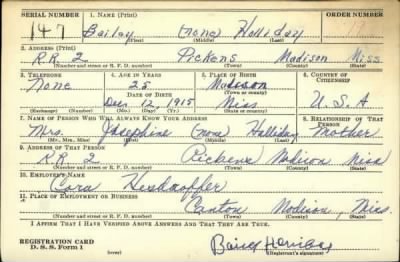 SERIAL NUMBER 1. NAME (Print) ORDER NUMBER
147 Bailey (none) Holliday
(First) (Middle) (Last)
2. ADDRESS (Print)
R.R. 2 Pickens Madison Miss
(Number and street or R. F. D. number) (Town) (County) (State)
3. TELEPHONE 4. AGE IN YEARS 5. PLACE OF BIRTH 6. COUNTRY OF CITIZENSHIP
None 25 Madison
DATE OF BIRTH (Town or county)
Dec 12, 1915 Miss U.S.A
(Exchange) (Number) (Mo.) (Day) (Yr.) (State or country)
7. NAME OF PERSON WHO WILL ALWAYS KNOW YOUR ADDRESS 8. RELATIONSHIP OF THAT PERSON
Mrs. Josephine (none) Holliday Mother
(Mr., Mrs., Miss) (First) (Middle) (Last)
9. ADDRESS OF THAT PERSON
R.R. 2 Pickens Madison Miss
(Number and street or R. F. D. number) (Town) (County) (State)
10. EMPLOYER'S NAME
Cora
11. PLACE OF EMPLOYMENT OR BUSINESS
Canton Madison, Miss.
(Number and street or R. F. D. number) (Town) (County) (State)
I AFFIRM THAT I HAVE VERIFIED ABOVE ANSWERS AND THAT THEY ARE TRUE.
REGISTRATION CARD
D. S. S. Form 1 (over) (Registrant's signature)